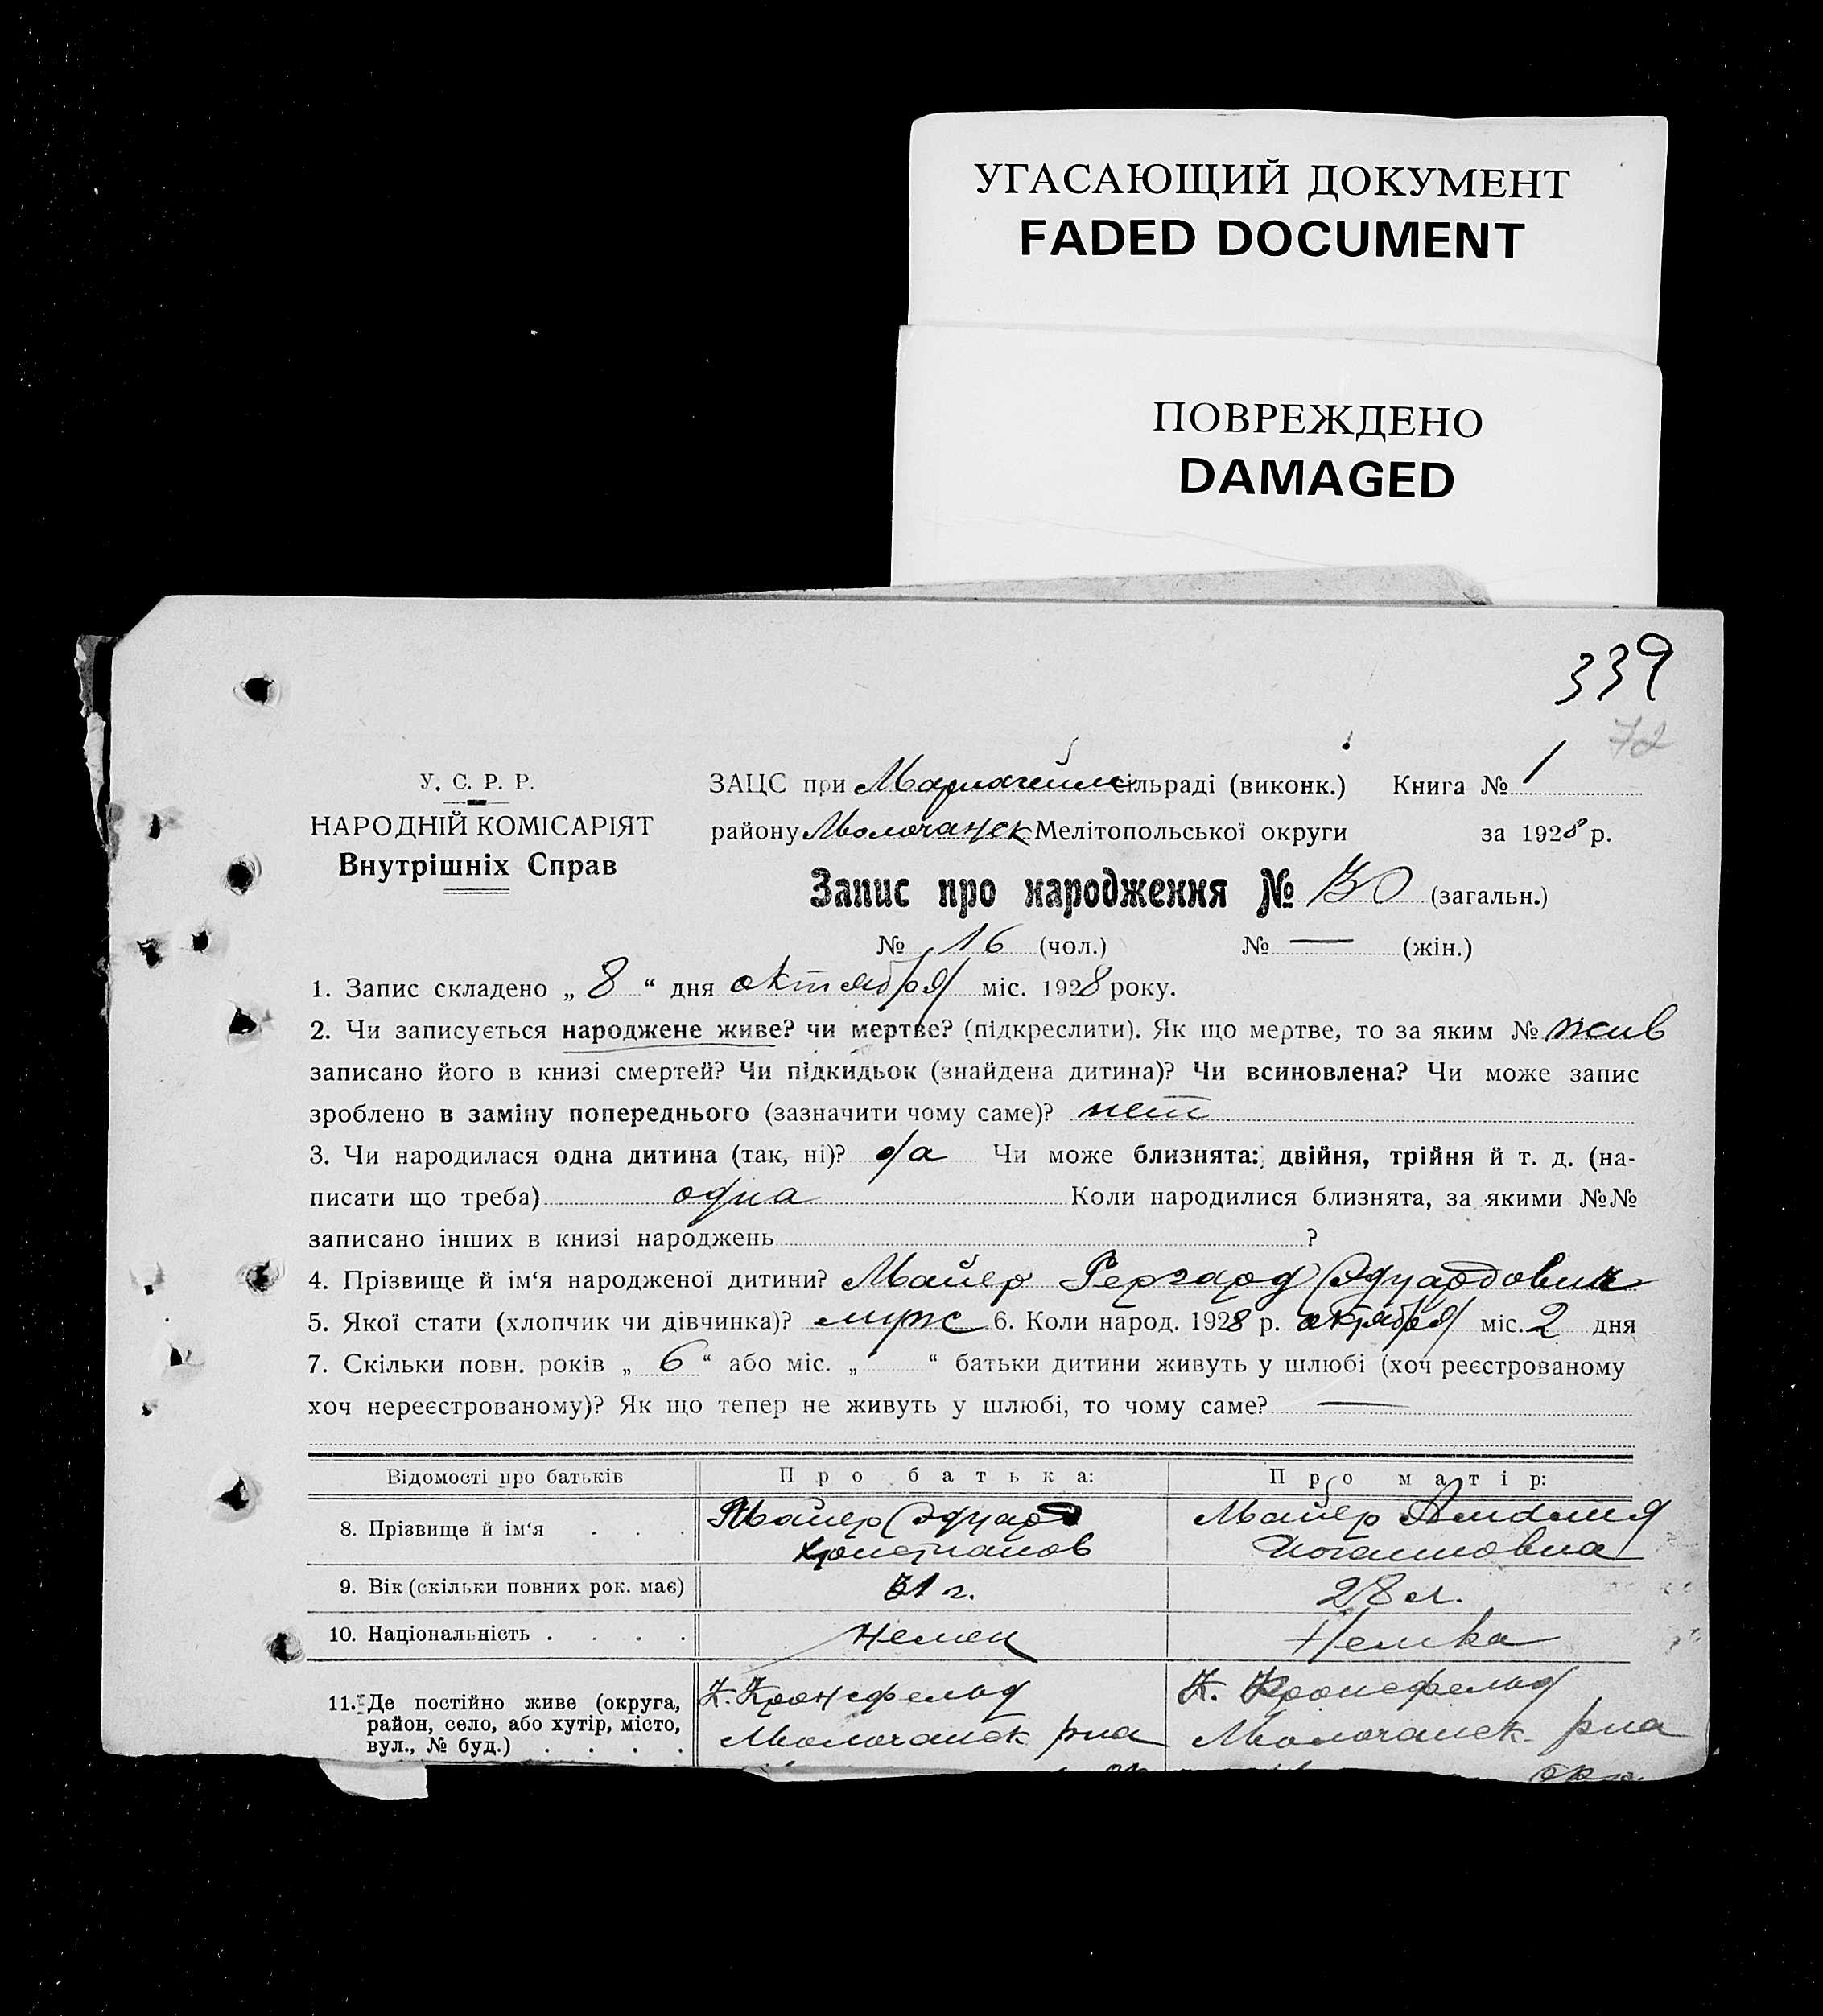 УГАСАЮЩИЙ ДОКУМЕНТ
FADED DOCUMENT
ПОВРЕЖДЕНО
DAMAGED
339
72
У. С. Р. Р.
НАРОДНІЙ КОМІСАРІЯТ
Внутрішніх Справ
ЗАЦС при сільраді (виконк.) Книга № 1
району Молочанск Мелітопольської округи за 1928 р.
Запис про народження № 30 (загальн.)
№ 16 (чол.) № — (жін.)
1. Запис складено „ 8 “ дня октября міс. 1928 року.
2. Чи записується народжене живе? чи мертве? (підкреслити). Як що мертве, то за яким № жив
записано його в книзі смертей? Чи підкидьок (знайдена дитина)? Чи всиновлена? Чи може запис
зроблено в заміну попереднього (зазначити чому саме)? нет
3. Чи народилася одна дитина (так, ні)? да Чи може близнята: двійня, трійня й т. д. (на-
писати що треба) одна Коли народилися близнята, за якими №№
записано інших в книзі народжень ?
4. Прізвище й ім‘я народженої дитини? Майер Гергард Эдуардович
5. Якої стати (хлопчик чи дівчинка)? муж 6. Коли народ. 1928 р. октября міс. 2 дня
7. Скільки повн. років „ 6 “ або міс. „ “ батьки дитини живуть у шлюбі (хоч реєстрованому
хоч нереєстрованому)? Як що тепер не живуть у шлюбі, то чому саме? —
Відомості про батьків Про батька: Про матір:
8. Прізвище й ім‘я . . . Майер Эдуард Майер
Христианов Иоганновна
9. Вік (скільки повних рок. має) 31 г. 28 л.
10. Національність . . . . Немец Немка
11. Де постійно живе (округа, район, село, або хутір, місто, вул., № буд.) . . . . К. Кронсфельд К. Кронсфельд
Молочанск рна Молочанск. рна
окр.